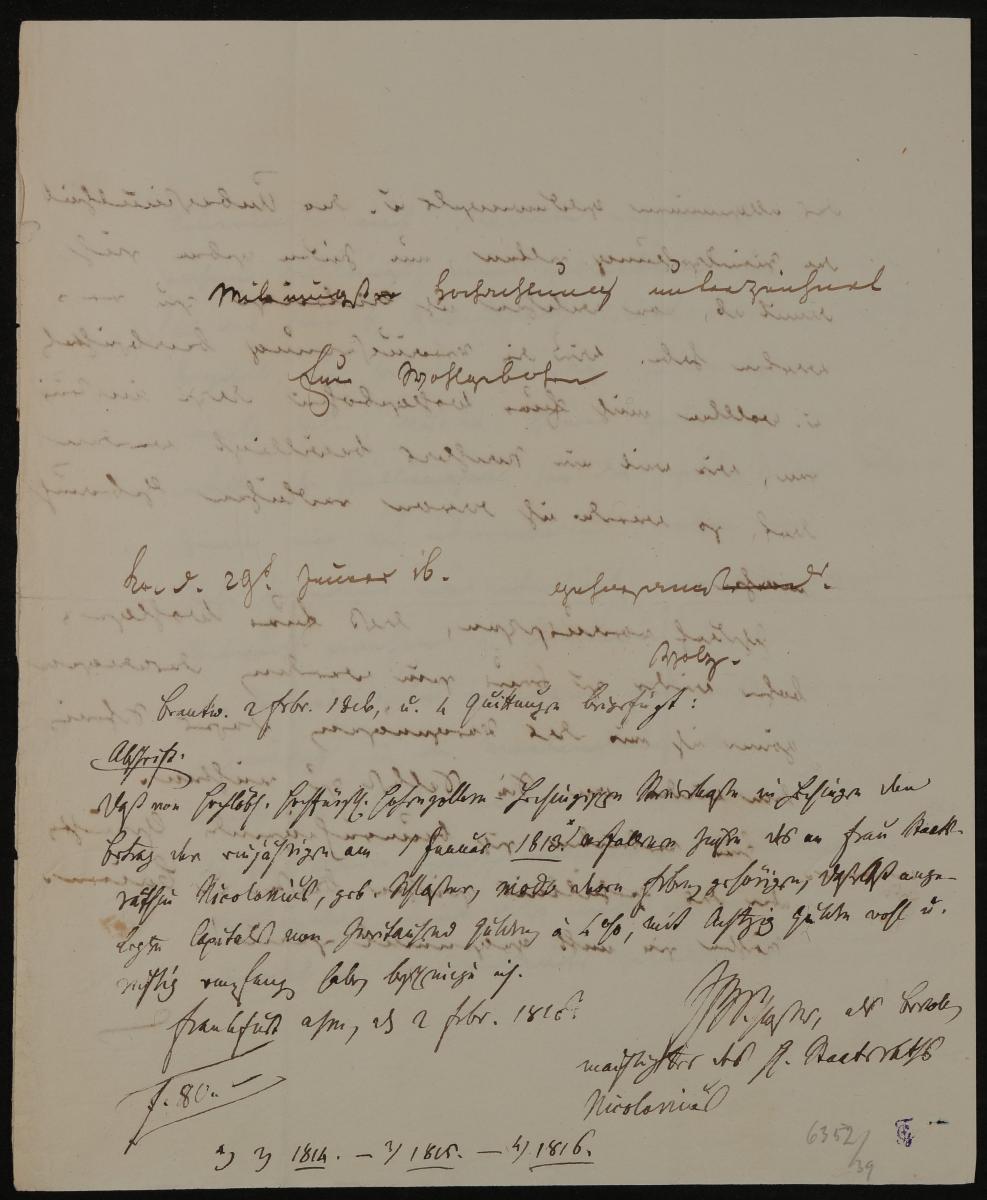 Hochachtung unterzeichnet
Euer Wohlgeboren
d. 29t. Januar 16.
gehorsamster Dr.
Beantw. 2 Febr. 1816, u. 4 Quittungen beigefügt:
Abschrift.
Daß von Hochlöbl. Hochfürstl. Hohenzollern-Hechingischen in Hechingen den
Betrag der einjährigen am 1 Januar 1813 verfallenen Zinsen des an Frau Staats-
räthin Nicolovius, geb. Schlosser, modo deren Erben gehörigen, daselbst ange-
legten Capitals von Zweitausend Gulden à 4 %, mit Achtzig Gulden wohl u.
richtig empfangen habe, bescheinige ich.
Frankfurt a/m, d 2 Febr. 1816.
Schlosser, als Bevoll-
mächtigter des H. Staatsraths
Nicolovius
f. 80.-
2) 1814. - 3) 1815. - 4) 1816.
6352/
39